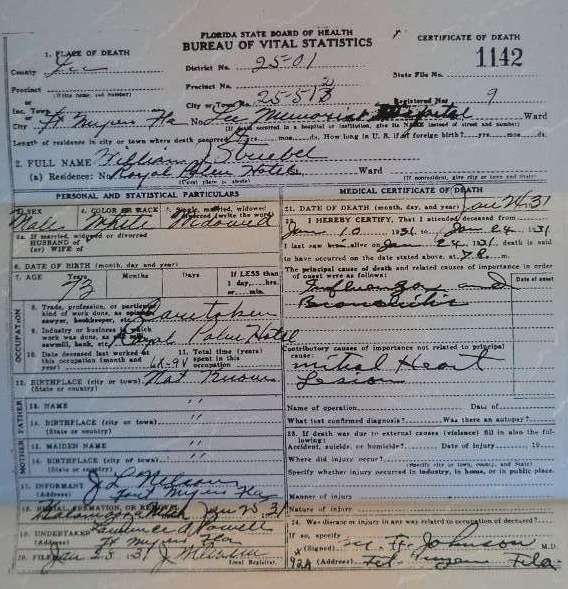 FLORIDA STATE BOARD OF HEALTH
BUREAU OF VITAL STATISTICS
CERTIFICATE OF DEATH
1142
State File No.
1. PLACE OF DEATH
County Lee
District No. 25-01
Precinct
(Write name, not number)
Precinct No. 2
Inc. Town
City or Town No. 25-513
Registered No. 9
City Ft Myers Fla No. Lee Memorial Hospital Ward
(If death occurred in a hospital or institution, give its NAME instead of street and number)
Length of residence in city or town where death occurred yrs. mos. ds. How long in U. S. if of foreign birth? yrs. mos. ds.
2. FULL NAME William J
(a) Residence: No. Royal Palm Hotel Ward
(Usual place of abode)
(If nonresident, give city or town and State)
PERSONAL AND STATISTICAL PARTICULARS
3. SEX
Male
4. COLOR OR RACE
White
5. Single, married, widowed, divorced (write the word)
Widowed
5a. If married, widowed or divorced
HUSBAND of
(or) WIFE of
6. DATE OF BIRTH (month, day and year)
7. AGE Years Months Days If LESS than
1 day, hrs.
or min.
73
OCCUPATION
8. Trade, profession, or particular
kind of work done, as spinner,
sawyer, bookkeeper, etc.
Caretaker
9. Industry or business in which
work was done, as silk mill,
sawmill, bank, etc.
Royal Palm Hotel
10. Date deceased last worked at
this occupation (month and
year)
11. Total time (years)
spent in this
occupation
12. BIRTHPLACE (city or town) Not Known
(State or country)
FATHER
13. NAME "
14. BIRTHPLACE (city or town) "
(State or country)
MOTHER
15. MAIDEN NAME "
16. BIRTHPLACE (city or town) "
(State or country)
17. INFORMANT J L
(Address) Fort Myers Fla
18. BURIAL, CREMATION, OR REMOVAL
Kalamazoo Mich Jan 25, 31
19. UNDERTAKER Lawrence A Powell
(Address) Ft Myers Fla
20. FILED Jan 25 31 J
Local Registrar.
MEDICAL CERTIFICATE OF DEATH
21. DATE OF DEATH (month, day, and year) Jan 24 31
22. I HEREBY CERTIFY, That I attended deceased from
Jan 10 1931 to Jan 24 1931
I last saw him alive on Jan 24 1931 death is said
to have occurred on the date stated above, at m.
The principal cause of death and related causes of importance in order
of onset were as follows:
Date of onset
Influenza and
Bronchitis
Contributory causes of importance not related to principal
cause:
Mitral Heart
Lesion
Name of operation Date of
What test confirmed diagnosis? Was there an autopsy?
23. If death was due to external causes (violence) fill in also the following:
Accident, suicide, or homicide? Date of injury 19
Where did injury occur?
(Specify city or town, county, and State)
Specify whether injury occurred in industry, in home, or in public place.
Manner of injury
Nature of injury
24. Was disease or injury in any way related to occupation of deceased?
If so, specify
(Signed) Johnson M.D.
(Address) Ft. Myers Fla.